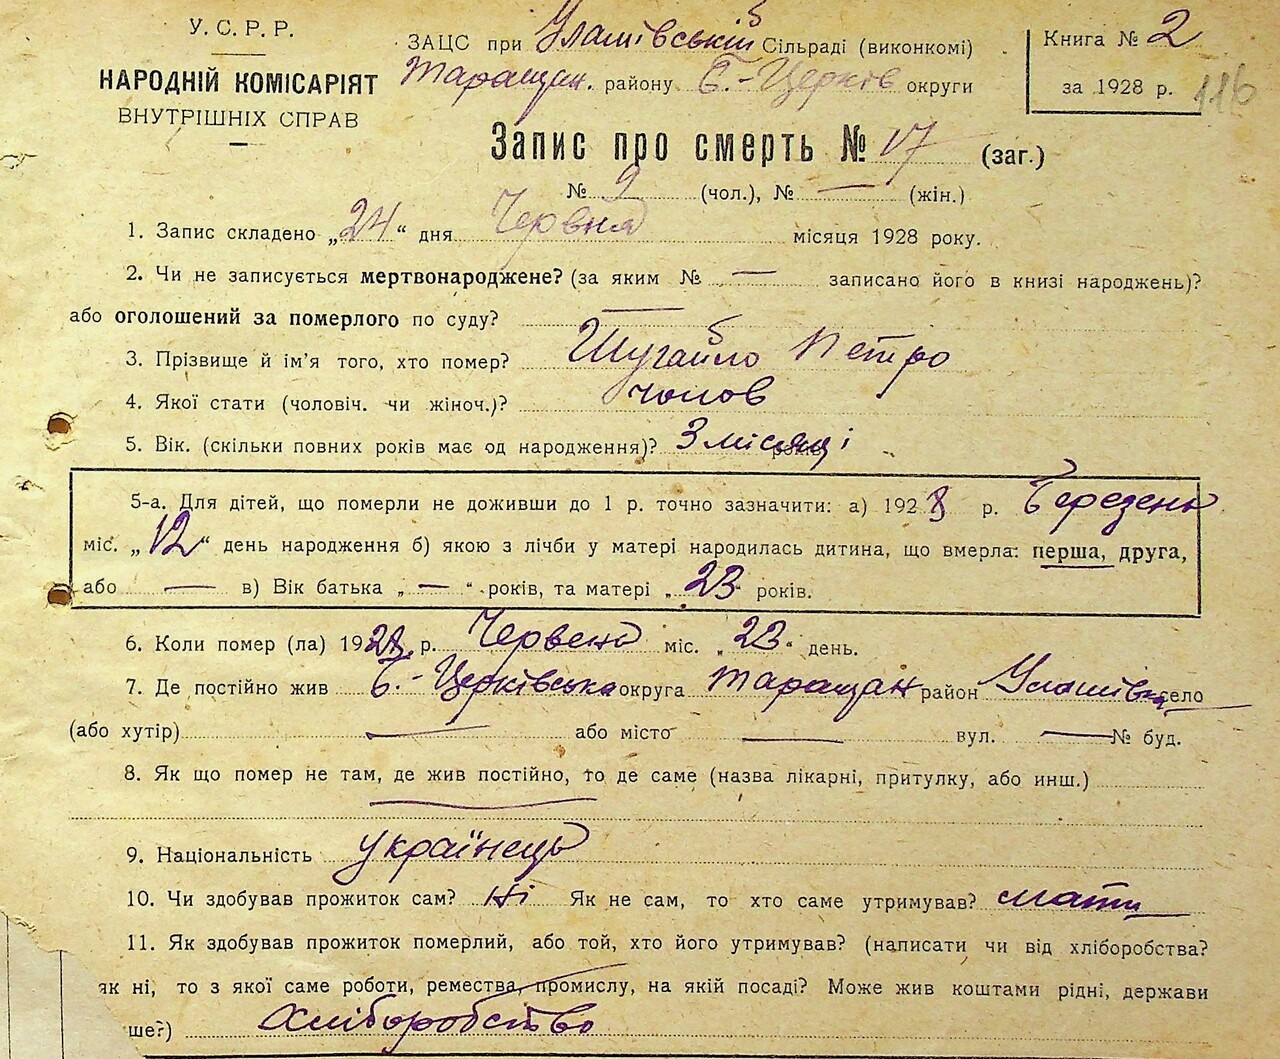 У. С. Р. Р.
НАРОДНІЙ КОМІСАРІЯТ
ВНУТРІШНІХ СПРАВ
ЗАЦС при Улашівській Сільраді (виконкомі)
Таращан. району Б.-Церків округи
Книга № 2
за 1928 р. 116
Запис про смерть № 17 (заг.)
№ 9 (чол.), № — (жін.)
1. Запис складено „24“ дня Червня місяця 1928 року.
2. Чи не записується мертвонароджене? (за яким № — записано його в книзі народжень)?
або оголошений за померлого по суду? —
3. Прізвище й ім'я того, хто помер? Шугайло Петро
4. Якої статі (чоловіч. чи жіноч.)? чолов
5. Вік. (скільки повних років має од народження)? 3 місяці років
5-а. Для дітей, що померли не доживши до 1 р. точно зазначити: а) 1928 р. Березень
міс. „12“ день народження б) якою з лічби у матері народилась дитина, що вмерла: перша, друга,
або — в) Вік батька „—“ років, та матері „23“ років.
6. Коли помер (ла) 1928 р. Червень міс. „23“ день.
7. Де постійно жив Б.-Церківська округа Таращан район Улашівка село
(або хутір) — або місто — вул. — № буд.
8. Як що помер не там, де жив постійно, то де саме (назва лікарні, притулку, або инш.)
—
9. Національність українець
10. Чи здобував прожиток сам? Ні Як не сам, то хто саме утримував? мати
11. Як здобував прожиток померлий, або той, хто його утримував? (написати чи від хліборобства?
як ні, то з якої саме роботи, ремества, промислу, на якій посаді? Може жив коштами рідні, держави
ше?) Хліборобство